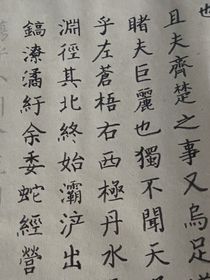 也
且夫齊楚之事又烏足
睹夫巨麗也獨不聞天
乎左蒼梧右西極丹水
淵徑其北終始灞浐出
鎬潦潏紆余委蛇經營